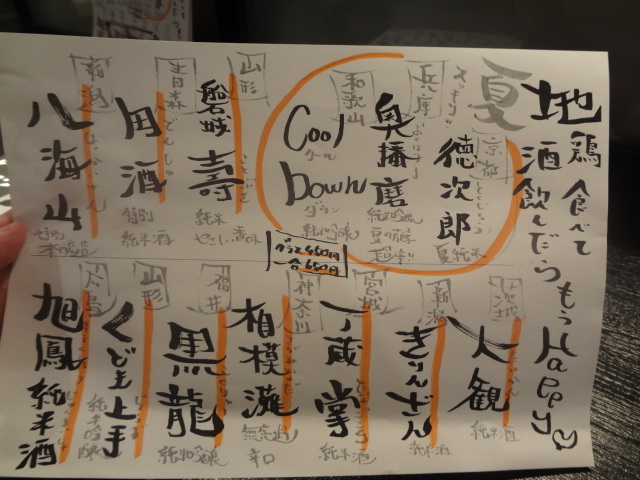 地鶏食べて
地酒飲んだらもうHappy♡
夏
さっぱり
京都
徳次郎
とくじろう
夏純米
兵庫
奥播磨
純米吟醸
夏の芳醇
超辛
和歌山
Cool
Down
クール
ダウン
純米吟醸
山形
磐城
壽
ことぶき
純米
青森
田酒
でんしゅ
特別
純米酒
新潟
八海山
はっかいさん
特別
本醸造
グラス460円
一合680円
茨城
大観
純米酒
新潟
きりんざん
純米酒
宮城
一ノ蔵
掌
純米酒
神奈川
相模灘
無濾過
辛口
福井
黒龍
純米吟醸
山形
くどき上手
純米吟醸
広島
旭鳳純米酒